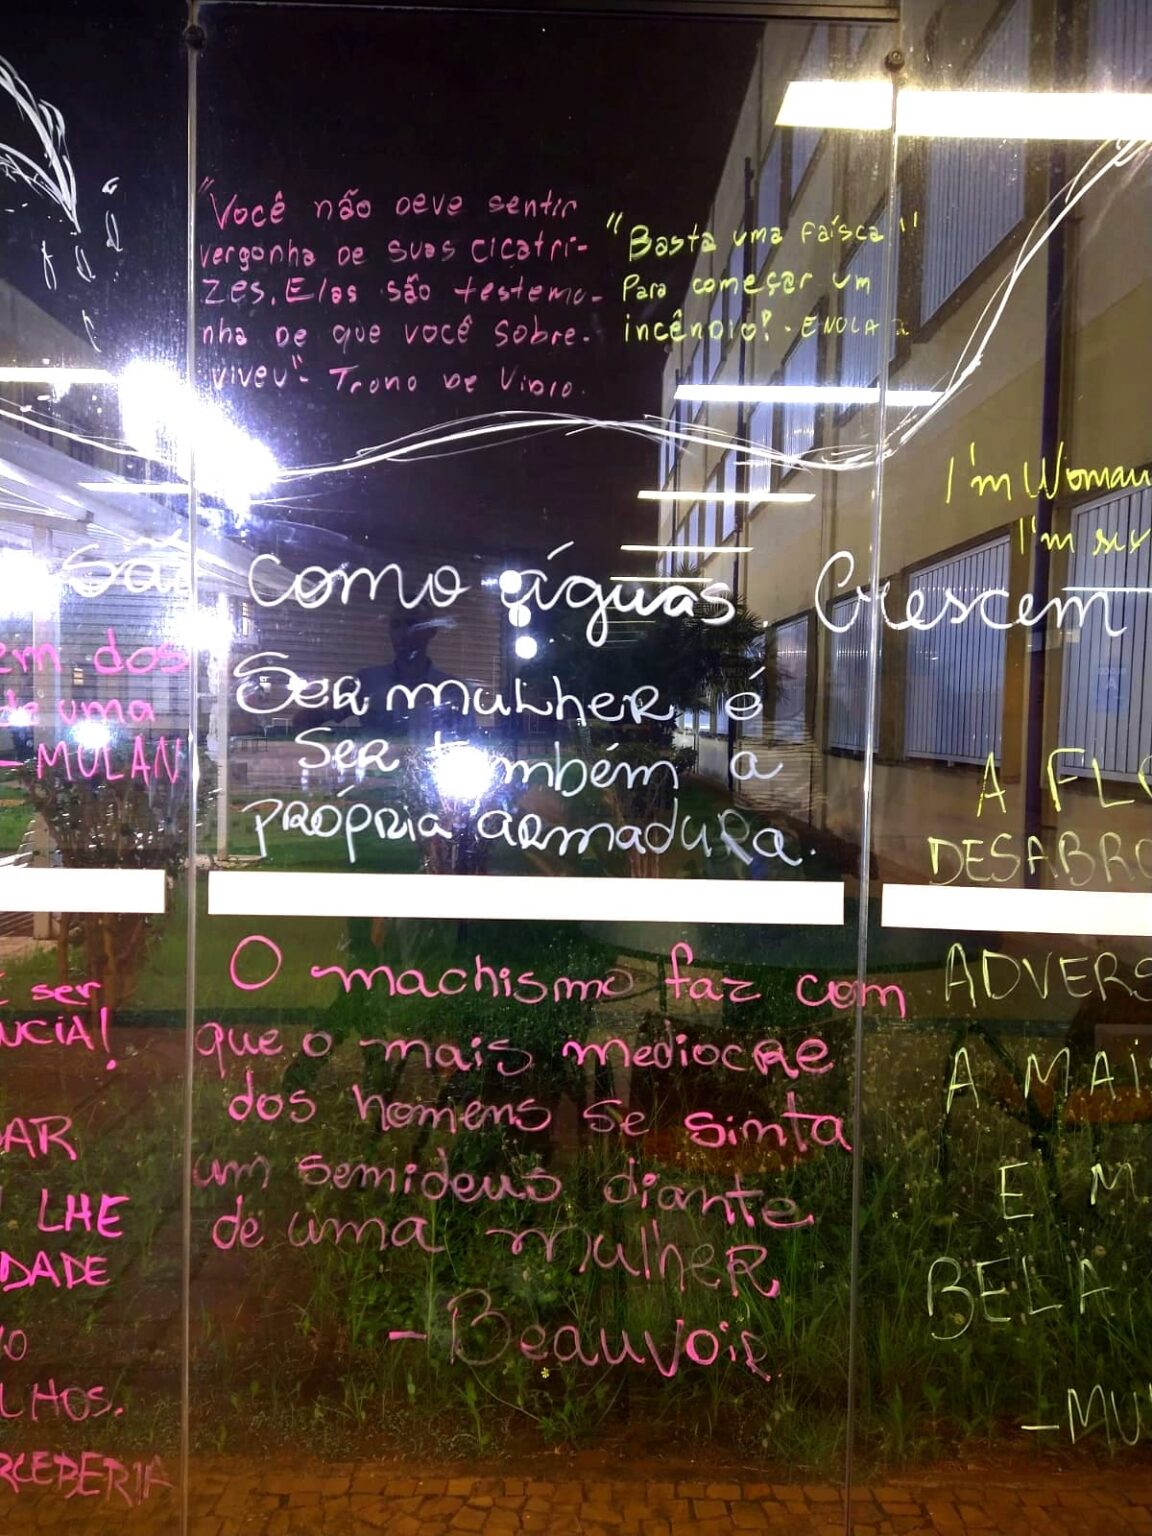 "Você não deve sentir
vergonha de suas cicatri-
zes. Elas são testemu-
nha de que você sobre-
viveu" - Trono de Vidro.
"Basta uma faísca"
Para começar um
incêndio! - ENOLA 2
I'm Woman
I'm
São como águas. Crescem
em dos
de uma
- MULAN
Ser mulher é
Ser também a
própria armadura.
A FLO
DESABRO
ADVERS
A MAIS
E M
BELA
- MU
O machismo faz com
que o mais medíocre
dos homens se sinta
um semideus diante
de uma mulher
- Beauvoir.
ser
NCIA!
DAR
LHE
DADE
LHOS.
RCEBERIA